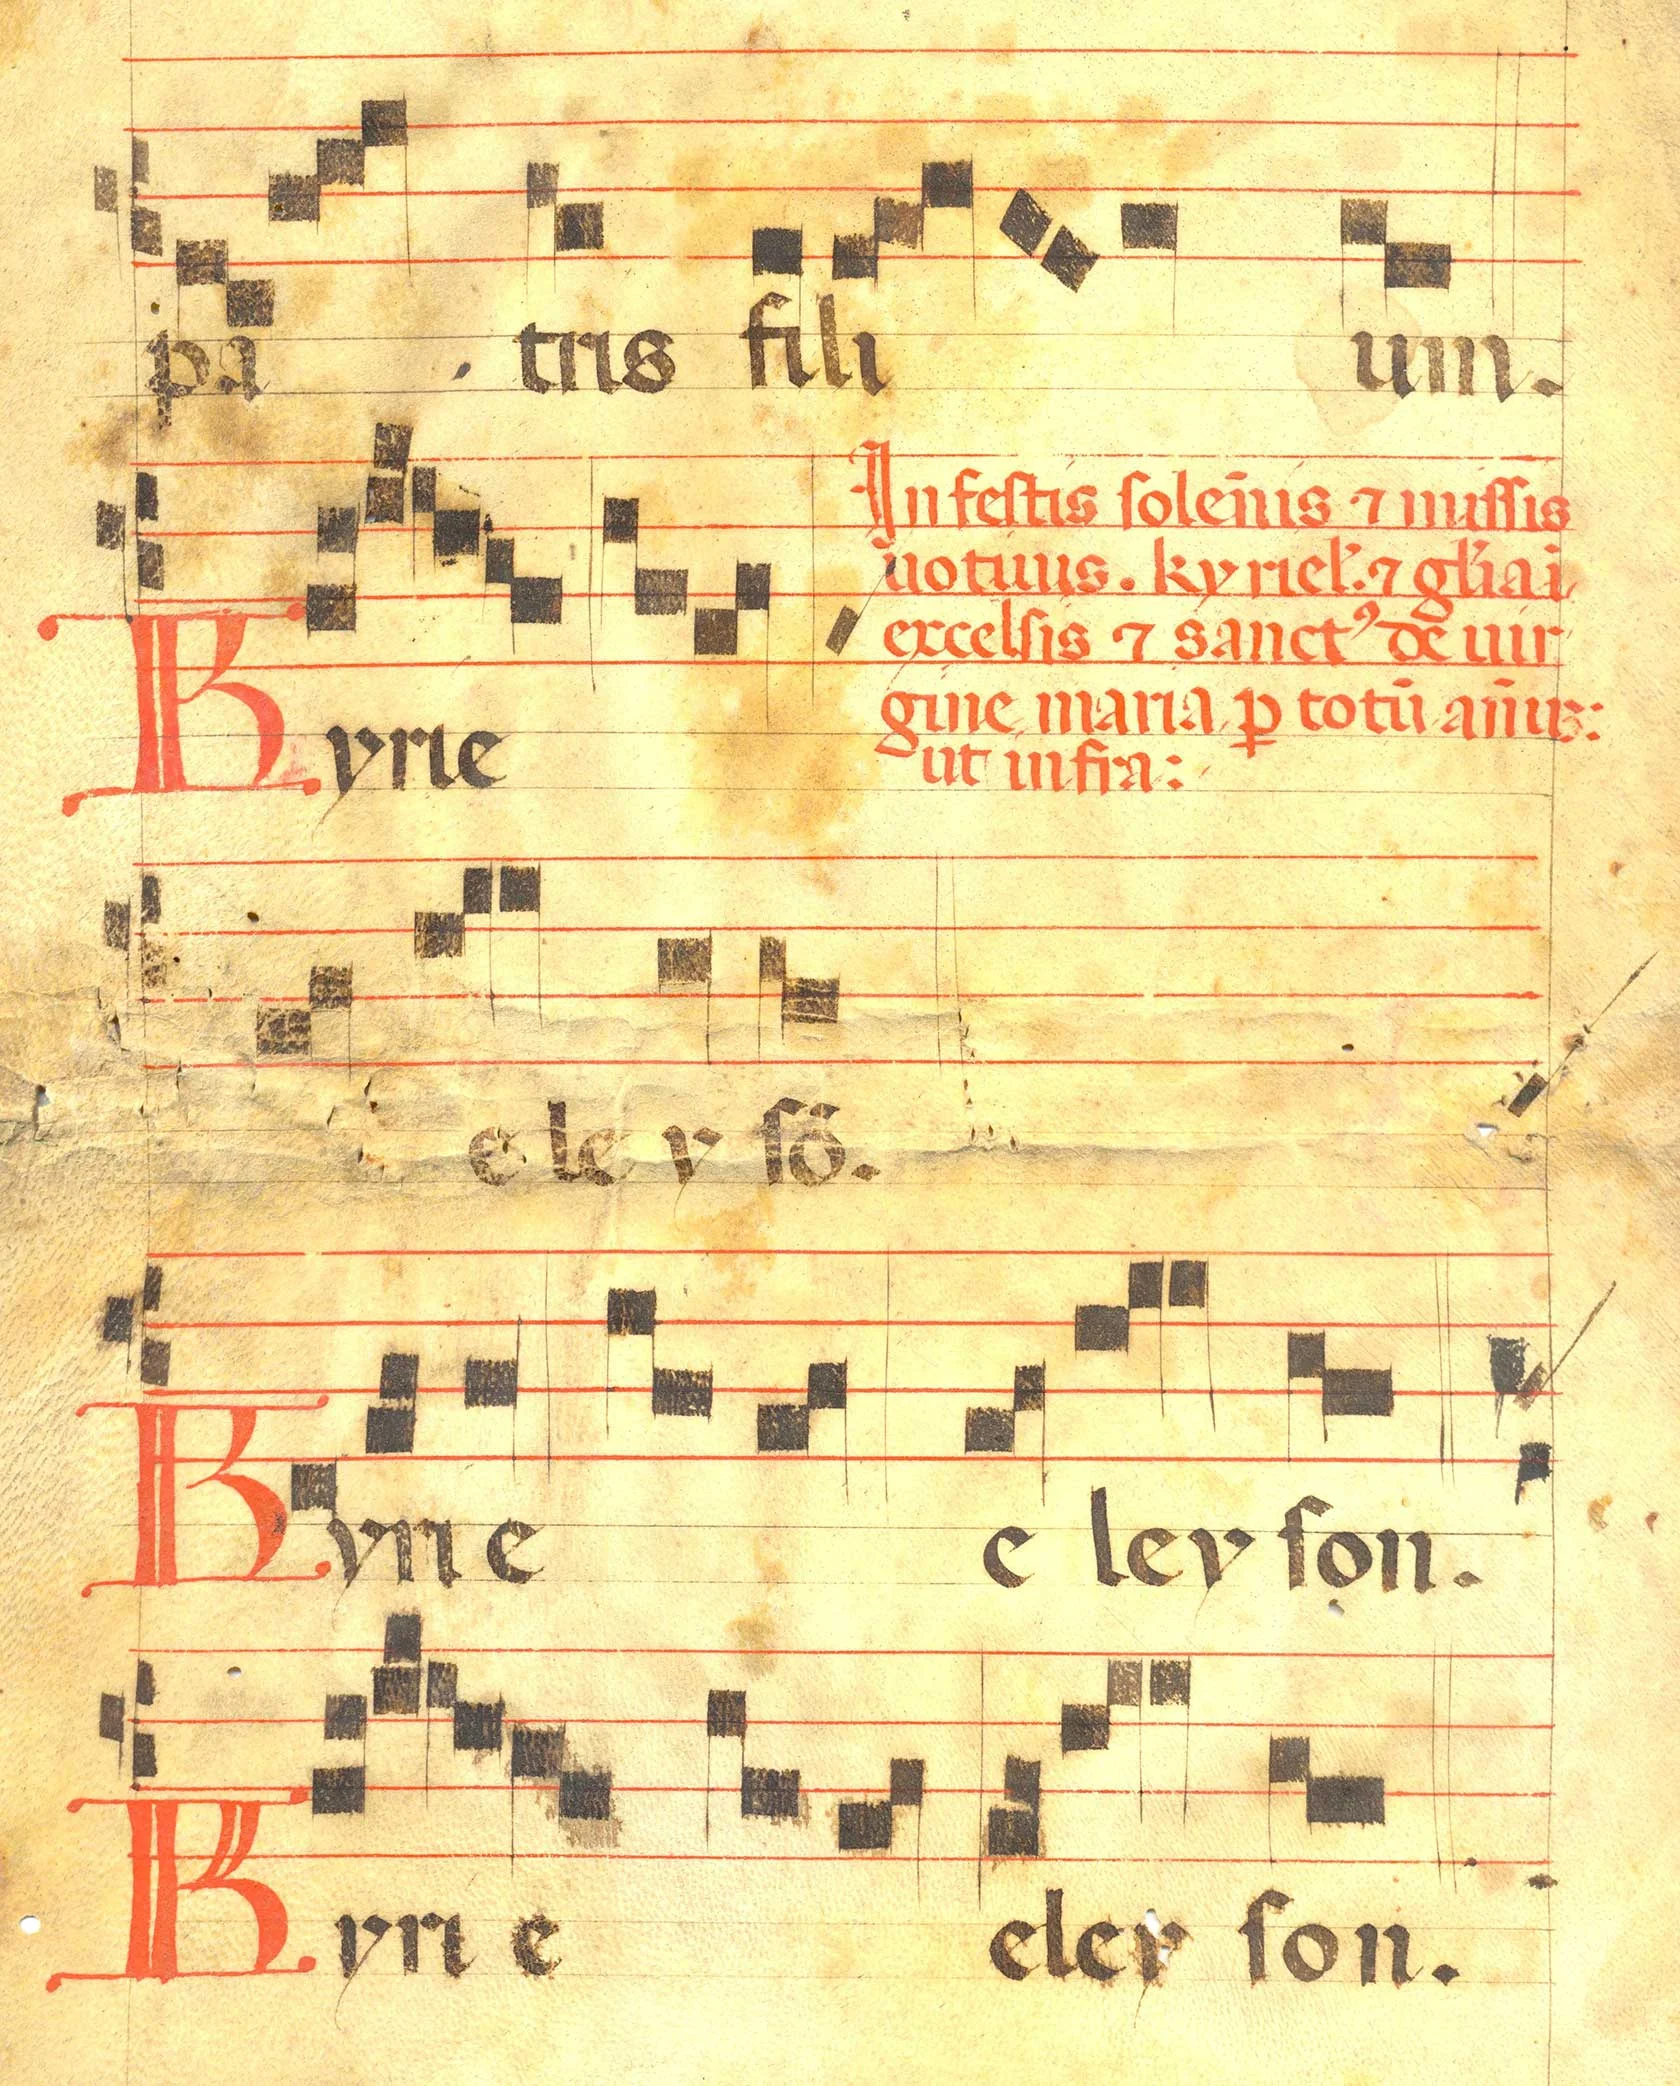 pa tris fili um.
In festis soleñis ⁊ missis
uotiuis. kyriel̃. ⁊ gl̃ia i
excelsis ⁊ sanctꝰ de uir
gine maria ꝑ totũ añũ:
ut infra:
Kyrie
e le y sõ.
Kyri e e ley son.
Kyri e eley son.